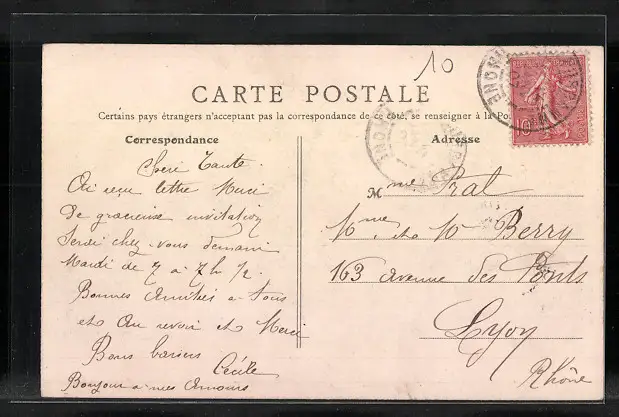 10
CARTE POSTALE
Certains pays étrangers n'acceptant pas la correspondance de ce côté, se renseigner à la Po
Correspondance
Adresse
Chère Tante.
Ai reçu lettre Merci
De gracieuse invitation
Serai chez-vous demain
Mardi de 7 à 7h 1/2.
Bonnes Amitiés à tous
et au revoir et Merci
Bons baisers
Cécile
Bonjour à mes Amours
Mme Prat
Mme et Mr Berry
163 avenue des Ponts
Lyon
Rhône
10